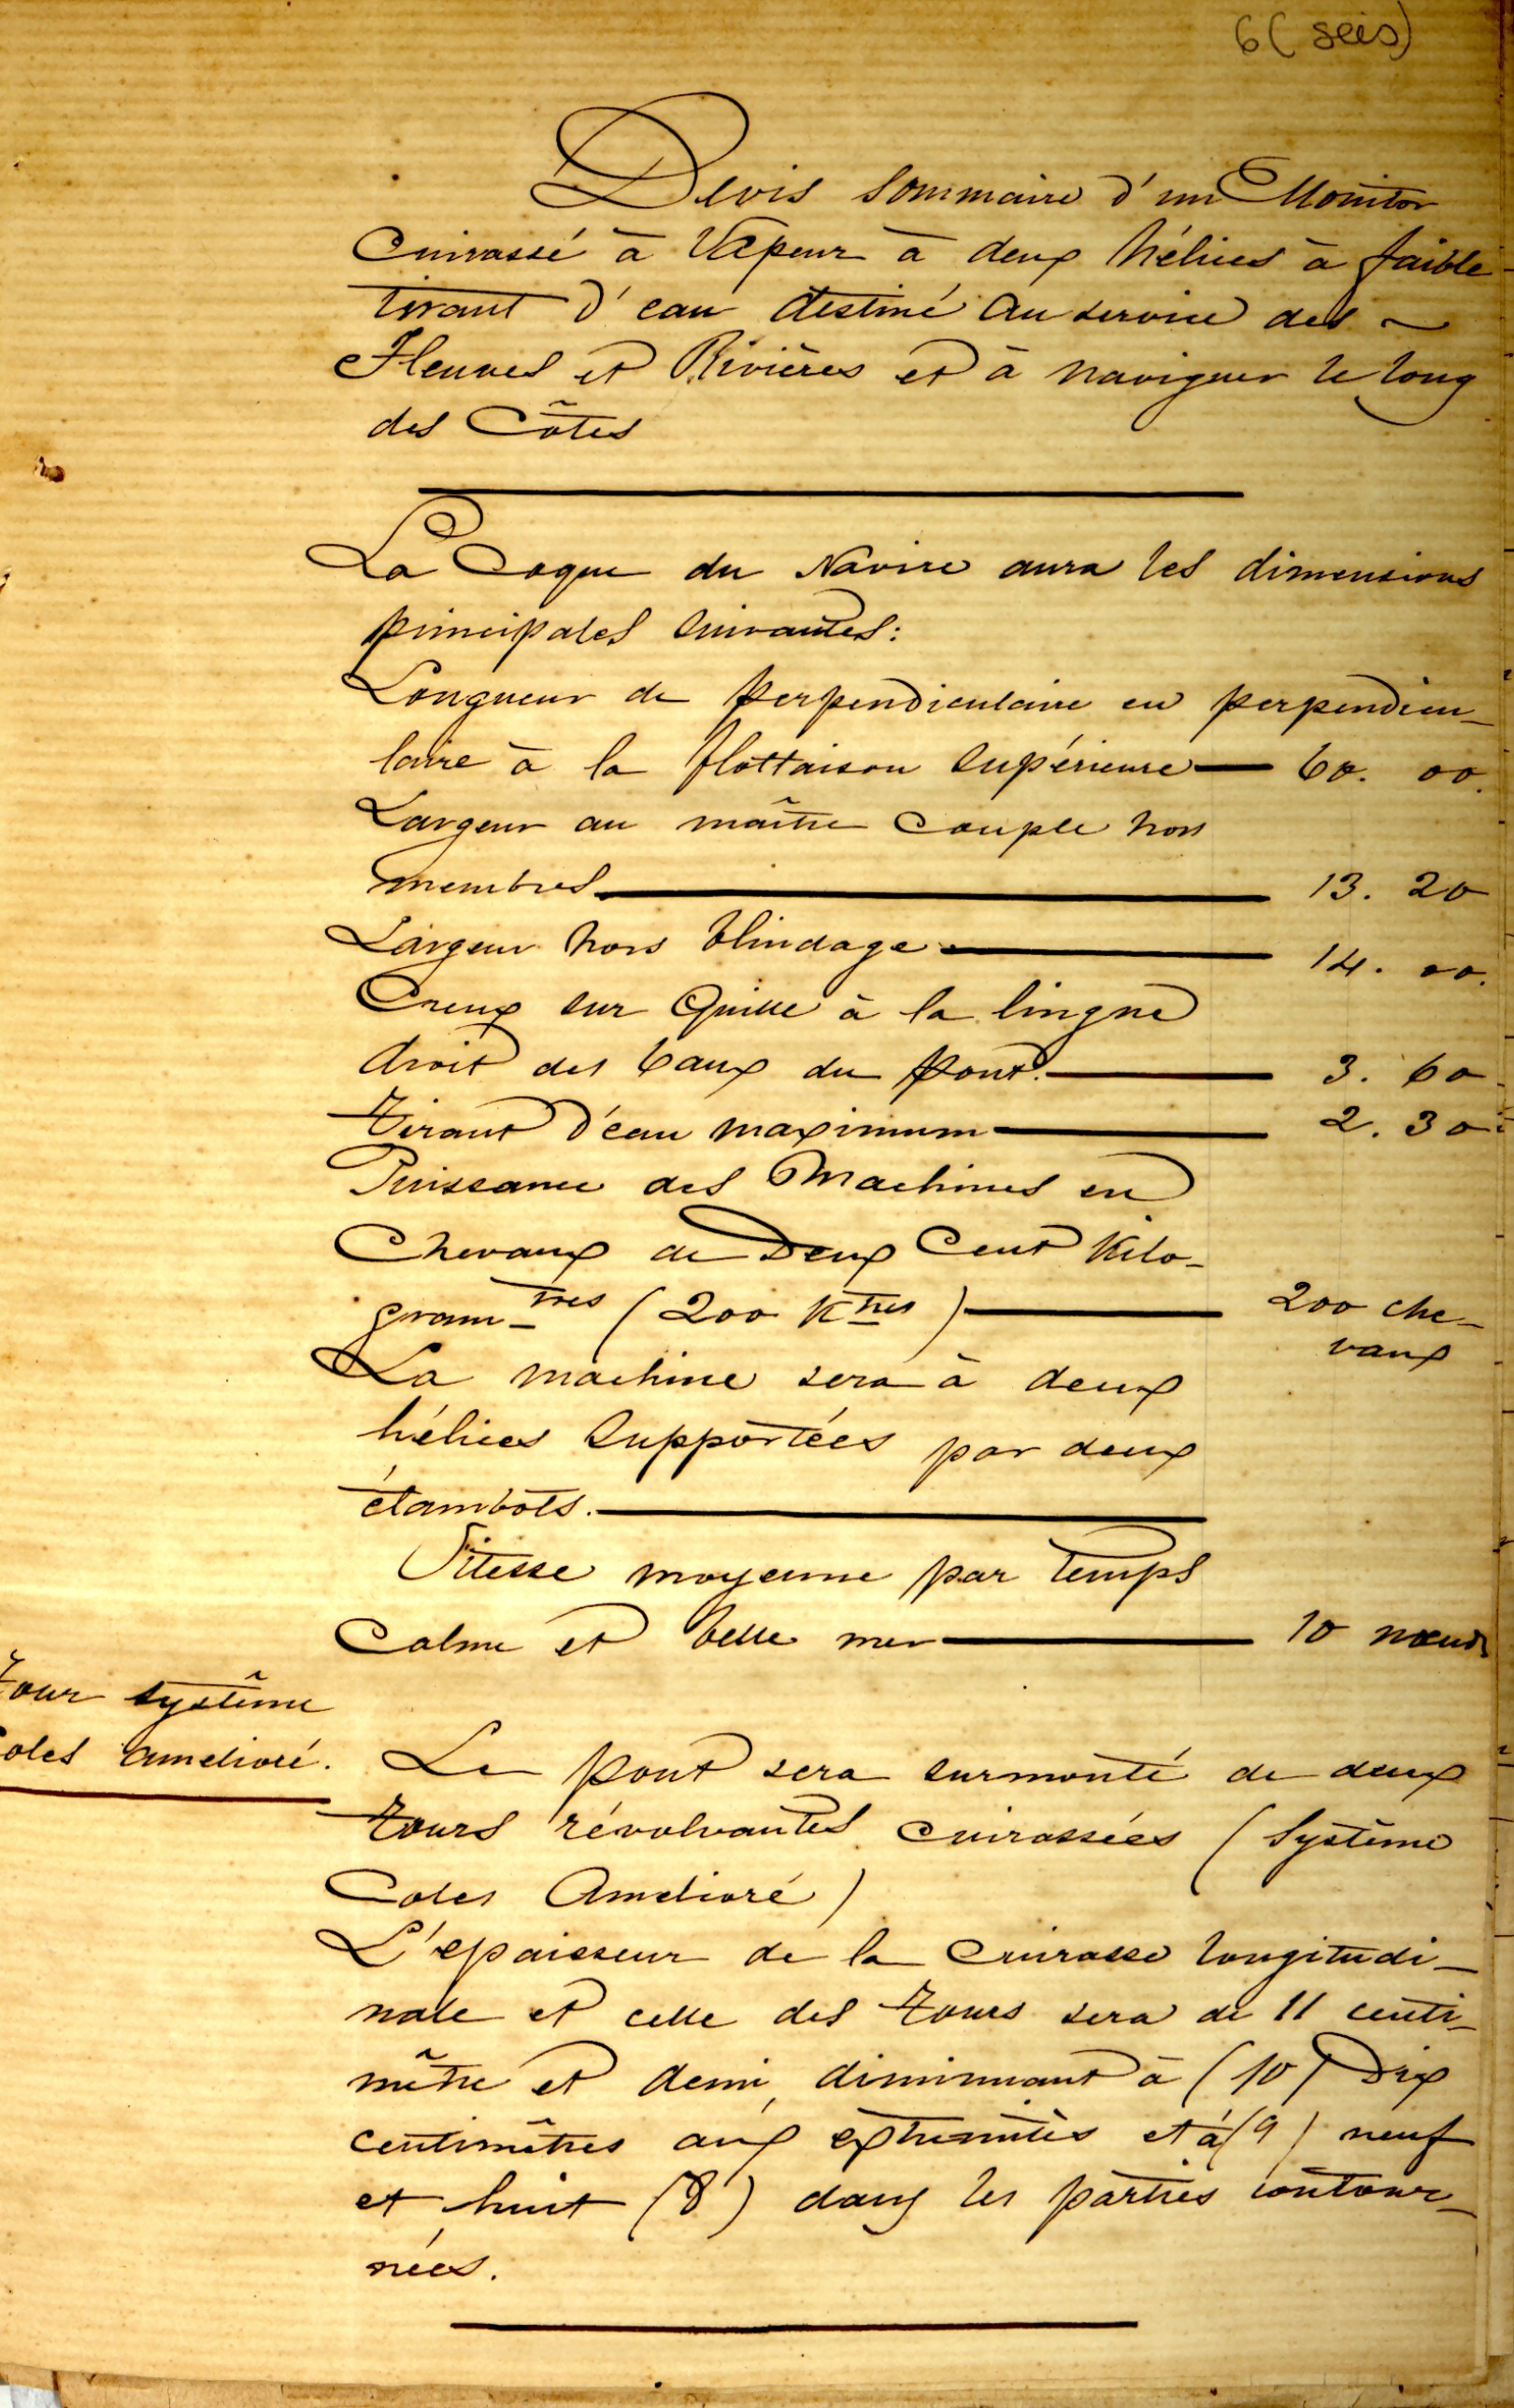 6 (seis)
Devis sommaire d'un Monitor
Cuirassé à Vapeur à deux hélices à faible
tirant d'eau destiné au service des
Fleuves et Rivières et à naviguer le long
des Côtes
La Coque du Navire aura les dimensions
principales suivantes:
Longueur de perpendiculaire en perpendicu-
laire à la flottaison supérieure — 60. 00.
Largeur au maître couple hors
membres — 13. 20
Largeur hors blindage — 14. 00.
Creux sur Quille à la lingne
droit des baux du pont. — 3. 60
Tirant d'eau maximum — 2. 30
Puissance des Machines en
Chevaux de Deux Cent Kilo-
gram-tres (200 Ktres) — 200 che-
vaux
La machine sera à deux
hélices supportées par deux
étambots. —
Vitesse moyenne par temps
Calme et belle mer — 10 nœuds
Tour système
Coles amelioré.
Le pont sera surmonté de deux
tours révolvantes cuirassées (Système
Coles Amelioré)
L'epaisseur de la Cuirasse longitudi-
nale et celle des tours sera de 11 centi-
mêtre et demi, diminuant à (10) Dix
centimêtres aux extremités et à (9) neuf
et huit (8) dans les parties contour-
nées.